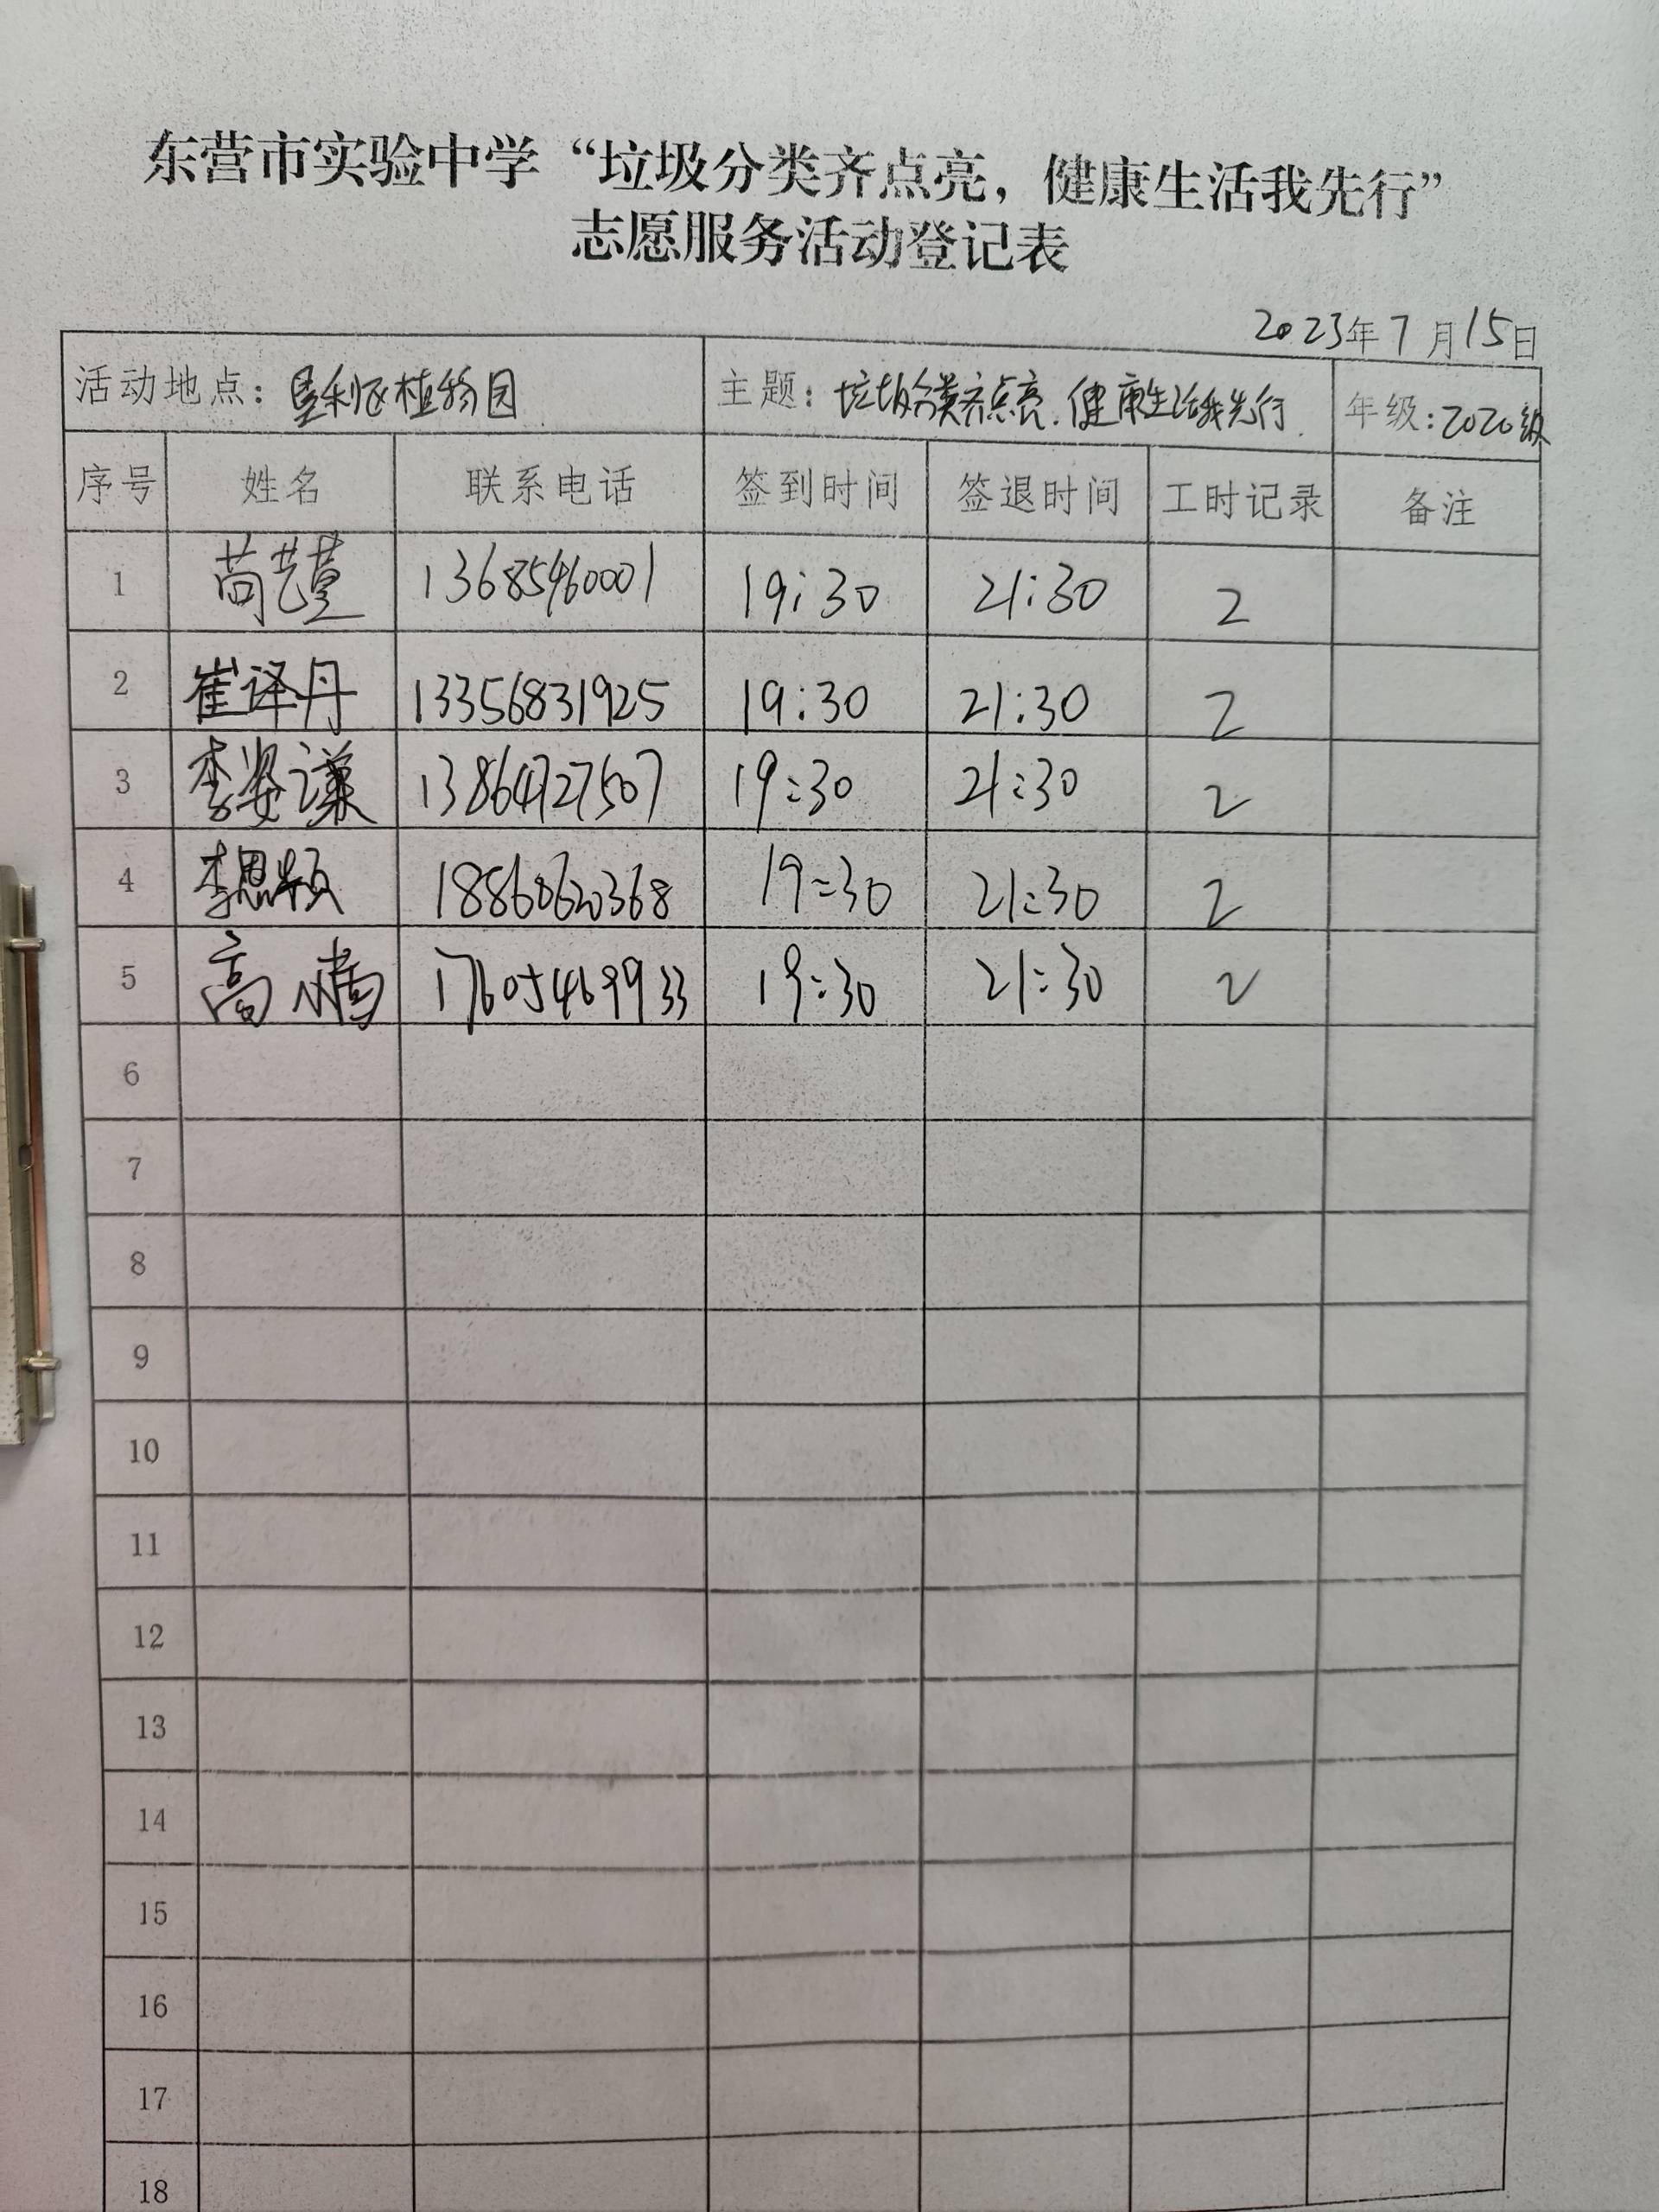 东营市实验中学“垃圾分类齐点亮，健康生活我先行”
志愿服务活动登记表
2023年7月15日
活动地点：垦利区植物园 主题：垃圾分类齐点亮.健康生活我先行 年级：2020级
序号 姓名 联系电话 签到时间 签退时间 工时记录 备注
1 13685460001 19:30 21:30 2
2 崔译丹 13356831925 19:30 21:30 2
3 李姿谦 13864727507 19:30 21:30 2
4 李思颖 18860620368 19:30 21:30 2
5 高 17605469933 19:30 21:30 2
6
7
8
9
10
11
12
13
14
15
16
17
18